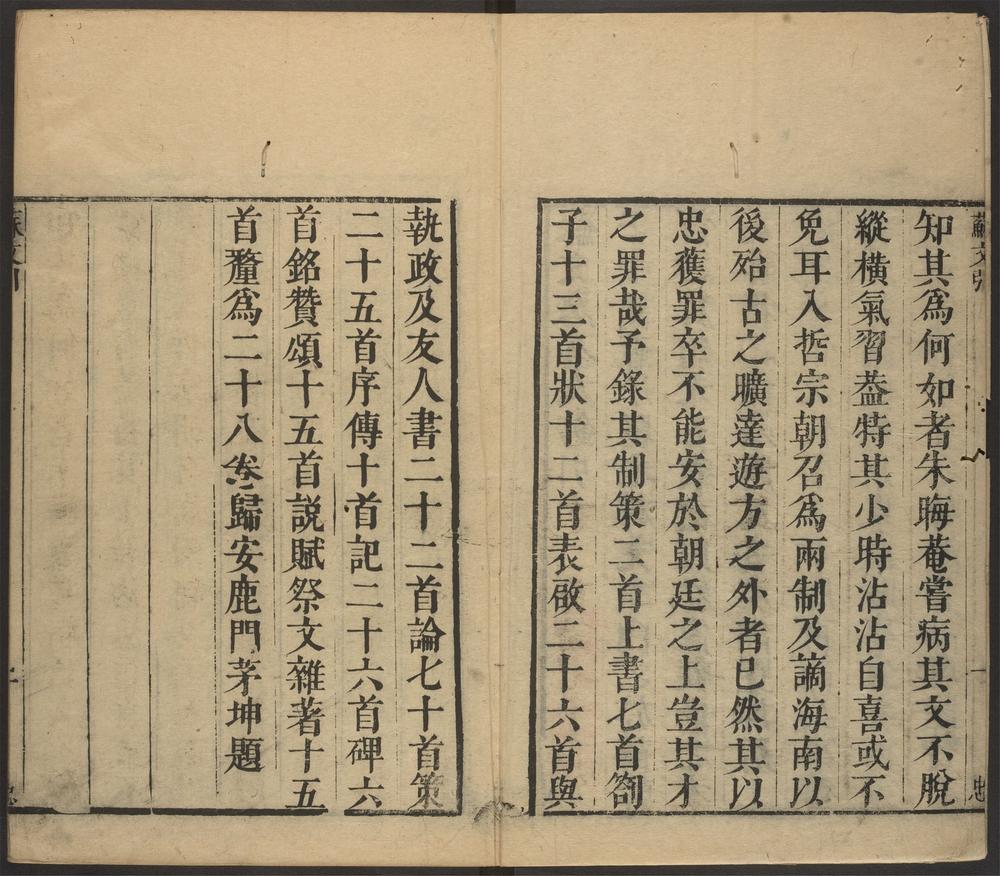 蘇文引
一
忠
知其爲何如者朱晦菴嘗病其文不脫
縱橫氣習葢特其少時沾沾自喜或不
免耳入哲宗朝召爲兩制及謫海南以
後殆古之曠達遊方之外者已然其以
忠獲罪卒不能安於朝廷之上豈其才
之罪哉予錄其制策二首上書七首劄
子十三首狀十二首表啟二十六首與
執政及友人書二十二首論七十首策
二十五首序傳十首記二十六首碑六
首銘贊頌十五首説賦祭文雜著十五
首釐爲二十八卷歸安鹿門茅坤題